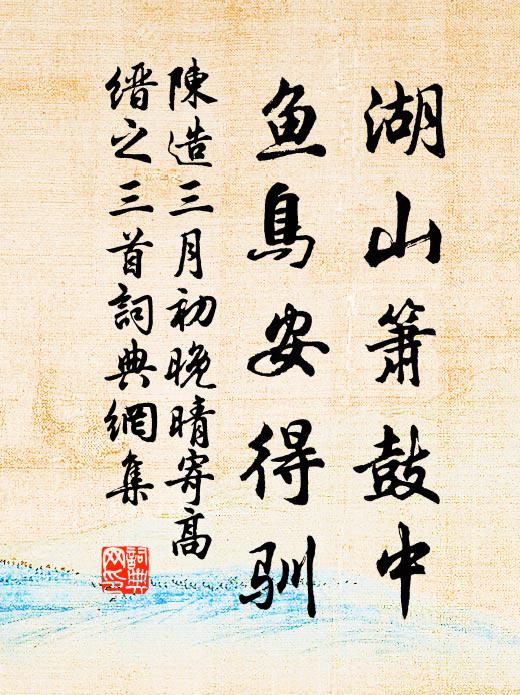 湖山箫鼓中
鱼鳥安得驯
陳造三月初晚晴寄高
缙之三首詞典網集
詞典
网印